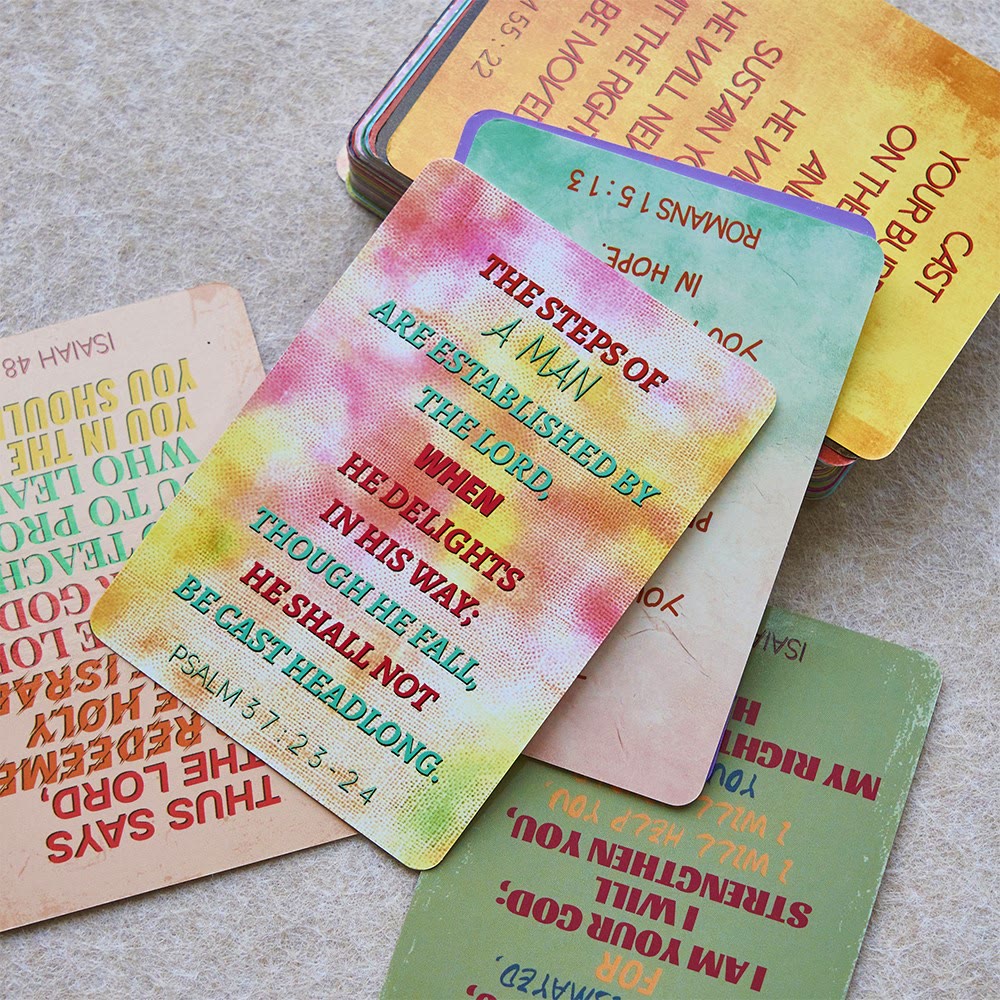 THE STEPS OF
A MAN
ARE ESTABLISHED BY
THE LORD,
WHEN
HE DELIGHTS
IN HIS WAY;
THOUGH HE FALL,
HE SHALL NOT
BE CAST HEADLONG.
PSALM 37:23-24
CAST
YOUR
ON THE
AND
HE
SUSTAIN
HE WILL
THE
BE MOVED
55:22
IN HOPE.
ROMANS 15:13
THUS SAYS
THE LORD,
HOLY
GOD
TEACH
TO
WHO
YOU IN THE
YOU
ISAIAH 48
FOR
I AM YOUR GOD:
I WILL
STRENGTHEN YOU,
I WILL HELP YOU.
I WILL
MY RIGHT
ISAIAH